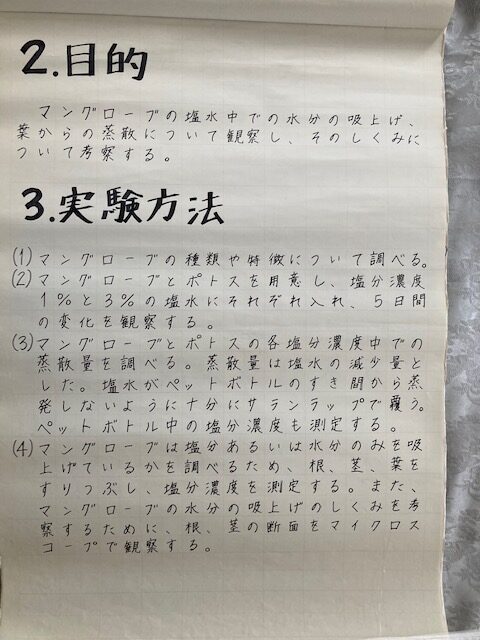 2.目的
マングローブの塩水中での水分の吸上げ、
葉からの蒸散について観察し、そのしくみに
ついて考察する。
3.実験方法
(1)マングローブの種類や特徴について調べる。
(2)マングローブとポトスを用意し、塩分濃度
1%と3%の塩水にそれぞれ入れ、5日間
の変化を観察する。
(3)マングローブとポトスの各塩分濃度中での
蒸散量を調べる。蒸散量は塩水の減少量と
した。塩水がペットボトルのすき間から蒸
発しないように十分にサランラップで覆う。
ペットボトル中の塩分濃度も測定する。
(4)マングローブは塩分あるいは水分のみを吸
上げているかを調べるため、根、茎、葉を
すりつぶし、塩分濃度を測定する。また、
マングローブの水分の吸上げのしくみを考
察するために、根、茎の断面をマイクロス
コープで観察する。